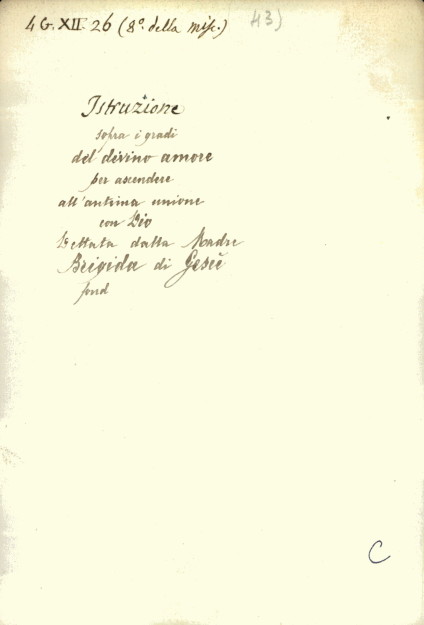 4 G. XII. 26 (8º. della misc.)
43)
Istruzione
sopra i gradi
del divino amore
per ascendere
all'antina unione
con Dio
Dettata dalla Madre
Brigida di Gesù
fond
C